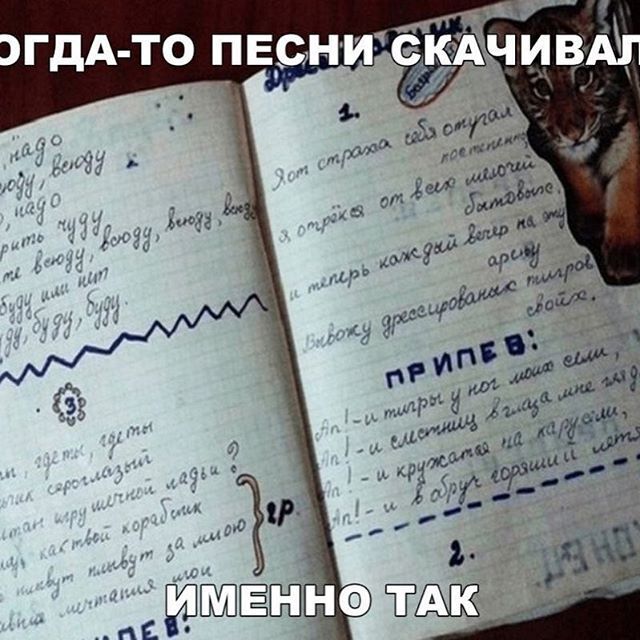 ОГДА-ТО ПЕСНИ СКАЧИВАЛ
надо
всюду
надо
чуду
всюду, всюду
буду или нет
буду, буду.
3
где ты, где ты
сероглазый
игрушечной ладьи?
как твой кораблик
плывут за мною
мечтания мои
2р.
1.
Я от страха себя отучал
постепенно
я отрёкся от всех мелочей
бытовых,
и теперь каждый вечер на эту
арену
Вывожу дрессированных тигров
своих.
ПРИПЕВ:
Ап!-и тигры у ног моих сели,
Ап!-и с лестниц в глаза мне глядя
Ап!-и кружатся на карусели,
Ап!-и в обруч горящий летя
2.
ИМЕННО ТАК